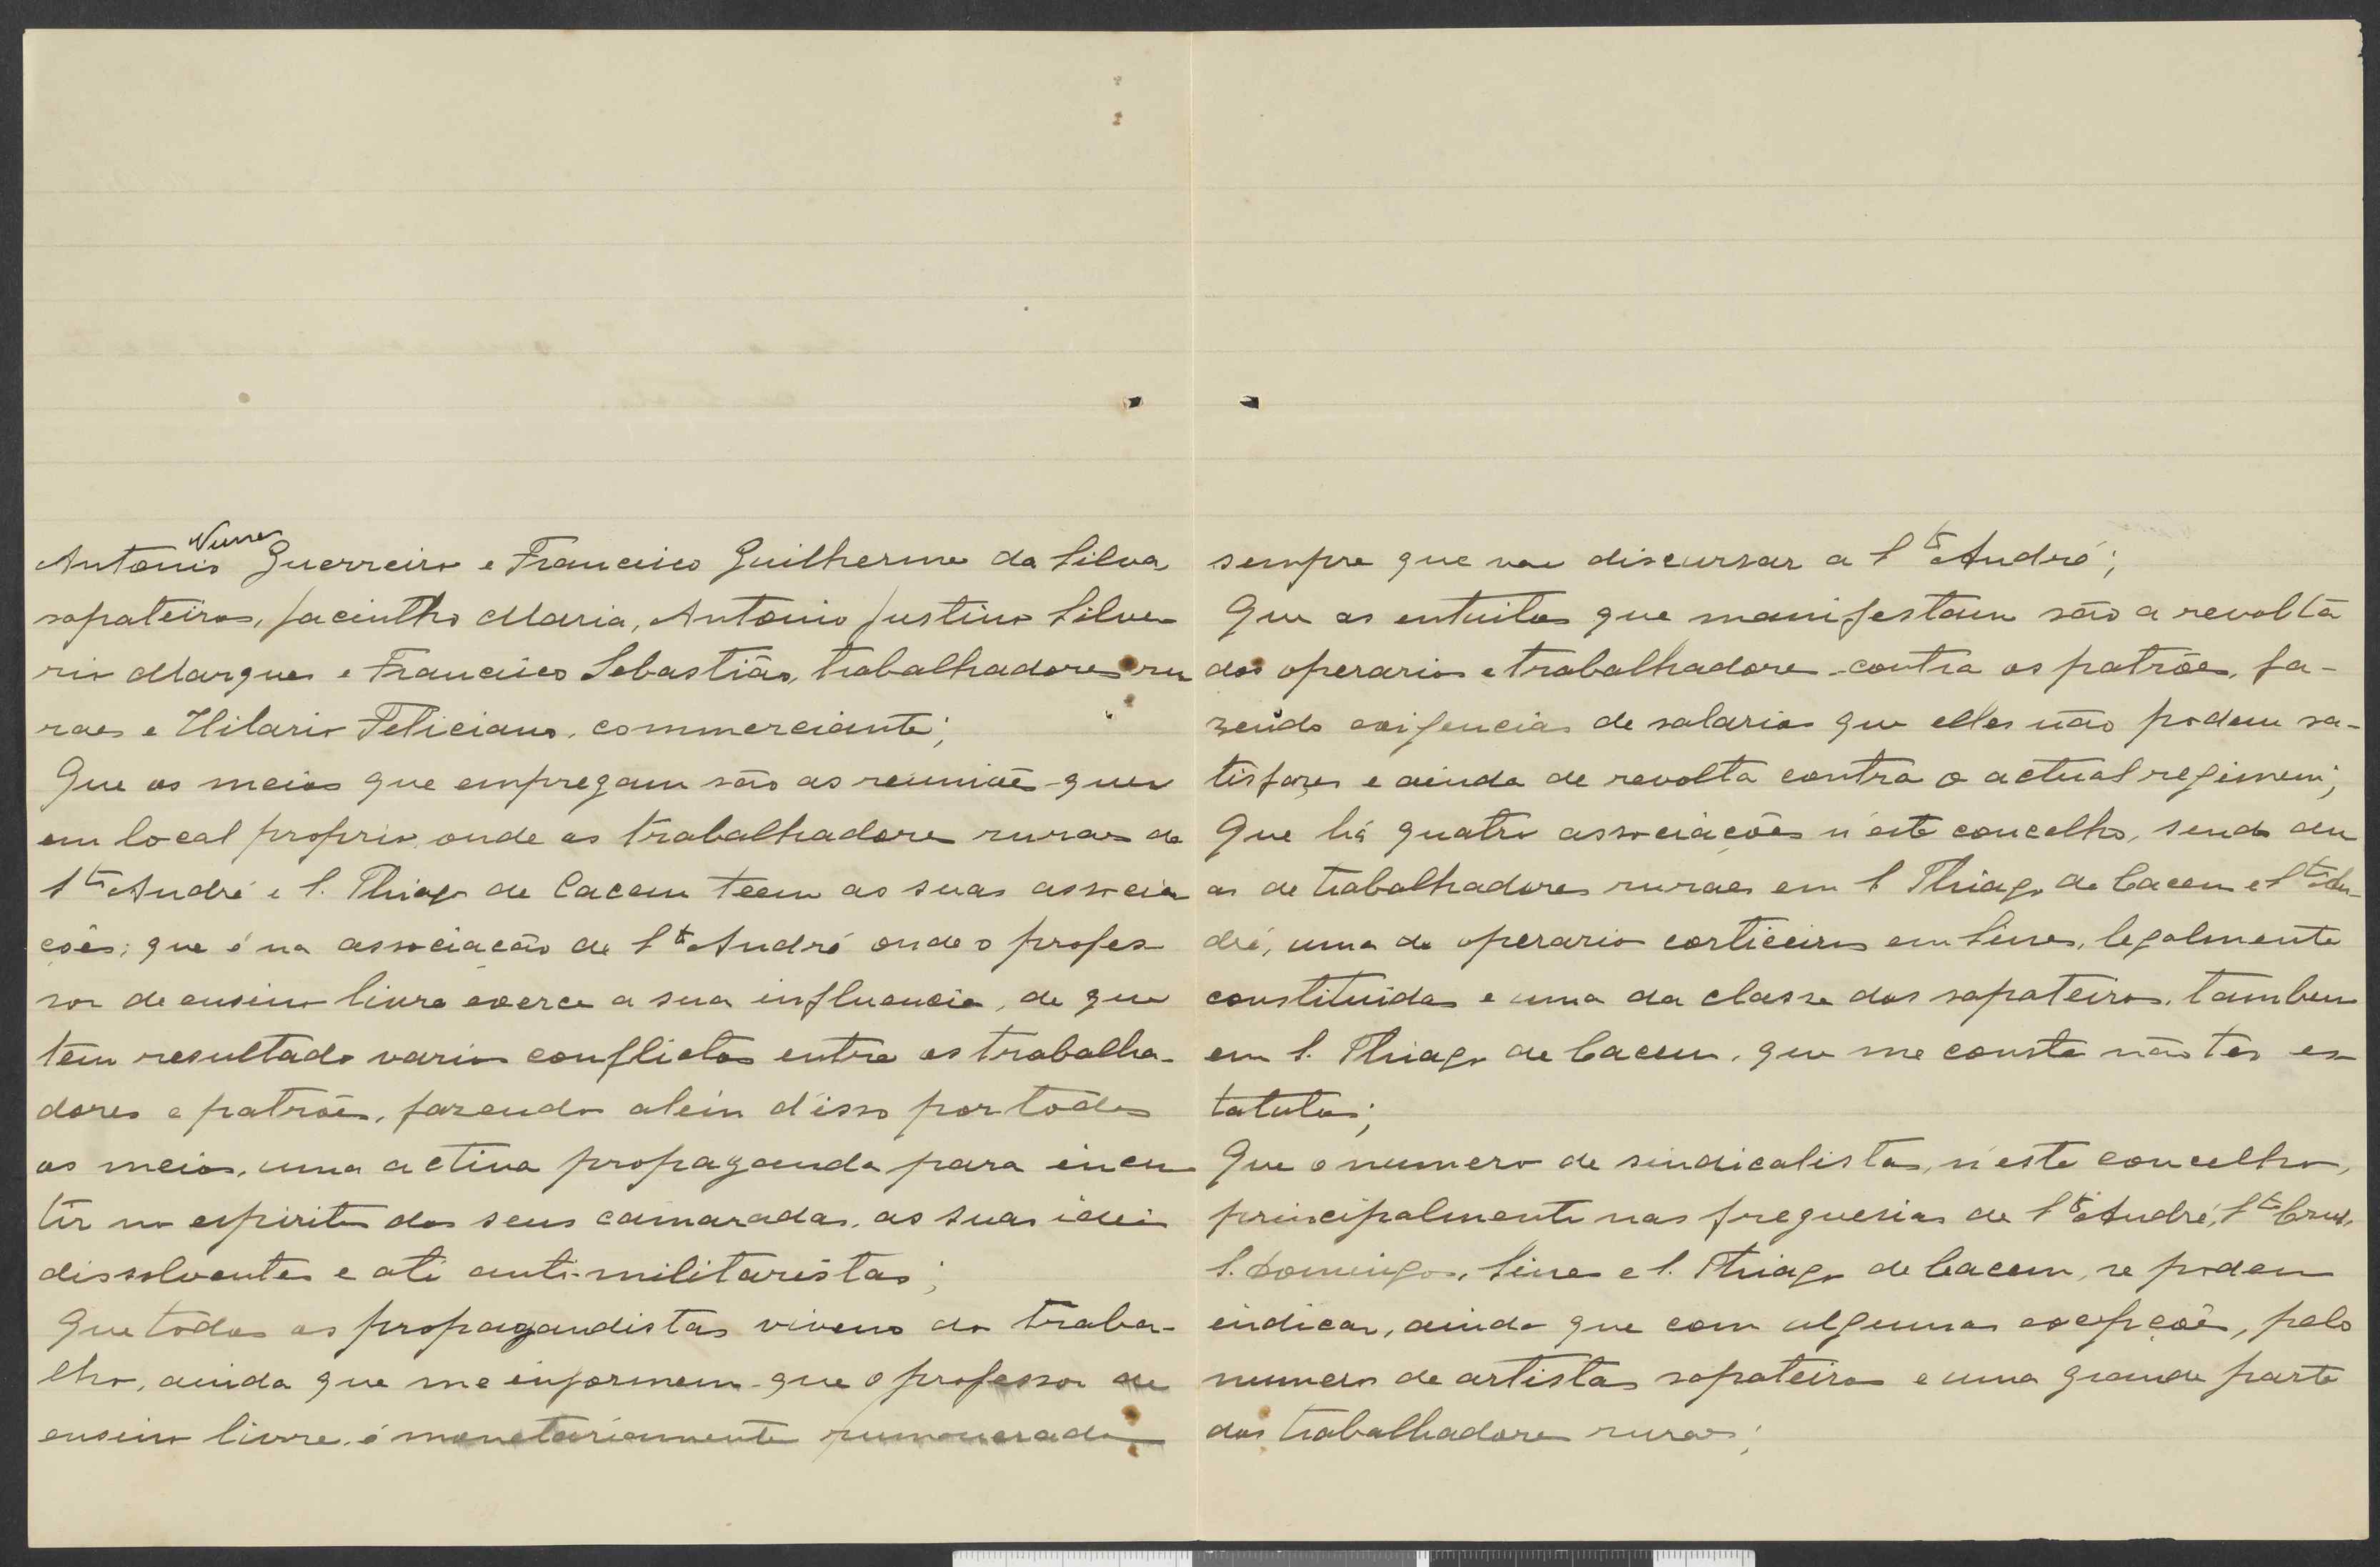 Antonio Nunes Guerreiro e Francisco Guilherme da Silva
sapateiros, Jacintho Maria, Antonio Justino Silve
rio Marques e Francisco Sebastião, trabalhadores ru
raes e Hilario Feliciano, commerciante;
Que os meios que empregam são as reuniões quer
em local proprio, onde os trabalhadores ruraes de
Sto André e S. Thiago de Cacem teem as suas associa
ções; que é na associacão de Sto André onde o profes-
sor de ensino livre exerce a sua influencia, de que
tem resultado varios conflictos entre os trabalha-
dores e patrões, fazendo alein d'isso por todos
os meios, uma activa propaganda para incu
tir no espirito dos seus camaradas, as suas idei
dissolventes e até anti-militaristas;
Que todos os propagandistas vivem do traba-
lho, ainda que me informem que o professor de
ensino livre, é monetariamente rumonerado
sempre que vae discursar a Sto André;
Que os intuitos que manifestam são a revolta
dos operarios e trabalhadores contra os patrões, fa-
zendo exigencias de salarios que elles não podem sa-
tisfazer e ainda de revolta contra o actual regimem;
Que há quatro associações n'este concelho, sendo du
as de trabalhadores ruraes em S Thiago de Cacem e Sto An-
dré, uma de operarios corticeiros em Sines, legalmente
constituidas e uma da classe dos sapateiros, tambem
em S. Thiago de Cacem, que me consta não ter es
tatutos;
Que o numero de sindicalistas, n'este concelho,
principalmente nas freguesias de Sto André, Sta Cruz,
S. Domingos, Sines e S. Thiago de Cacem, se podem
indicar, ainda que com algumas excepções, pelo
numero de artistas sapateiros e uma grande parte
dos trabalhadores ruraes;